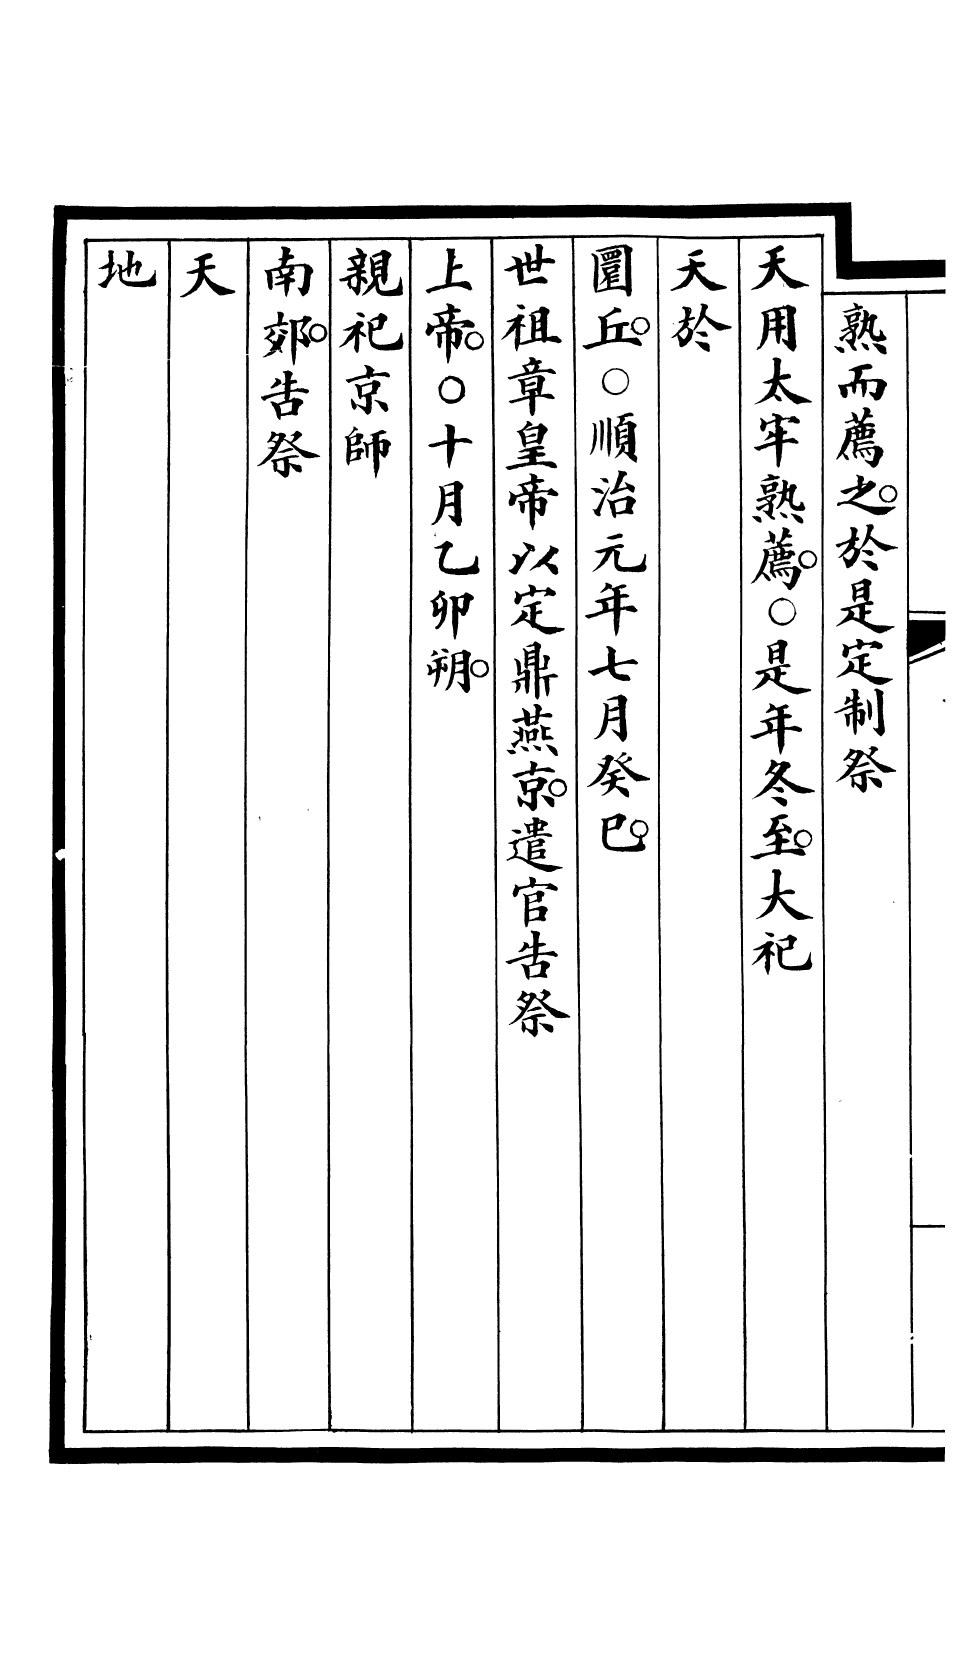 熟而薦之。於是定制祭
天用太牢熟薦。○是年冬至。大祀
天於
圜丘。○順治元年七月癸巳。
世祖章皇帝以定鼎燕京。遣官告祭
上帝。○十月乙卯朔。
親祀京師
南郊。告祭
天
地